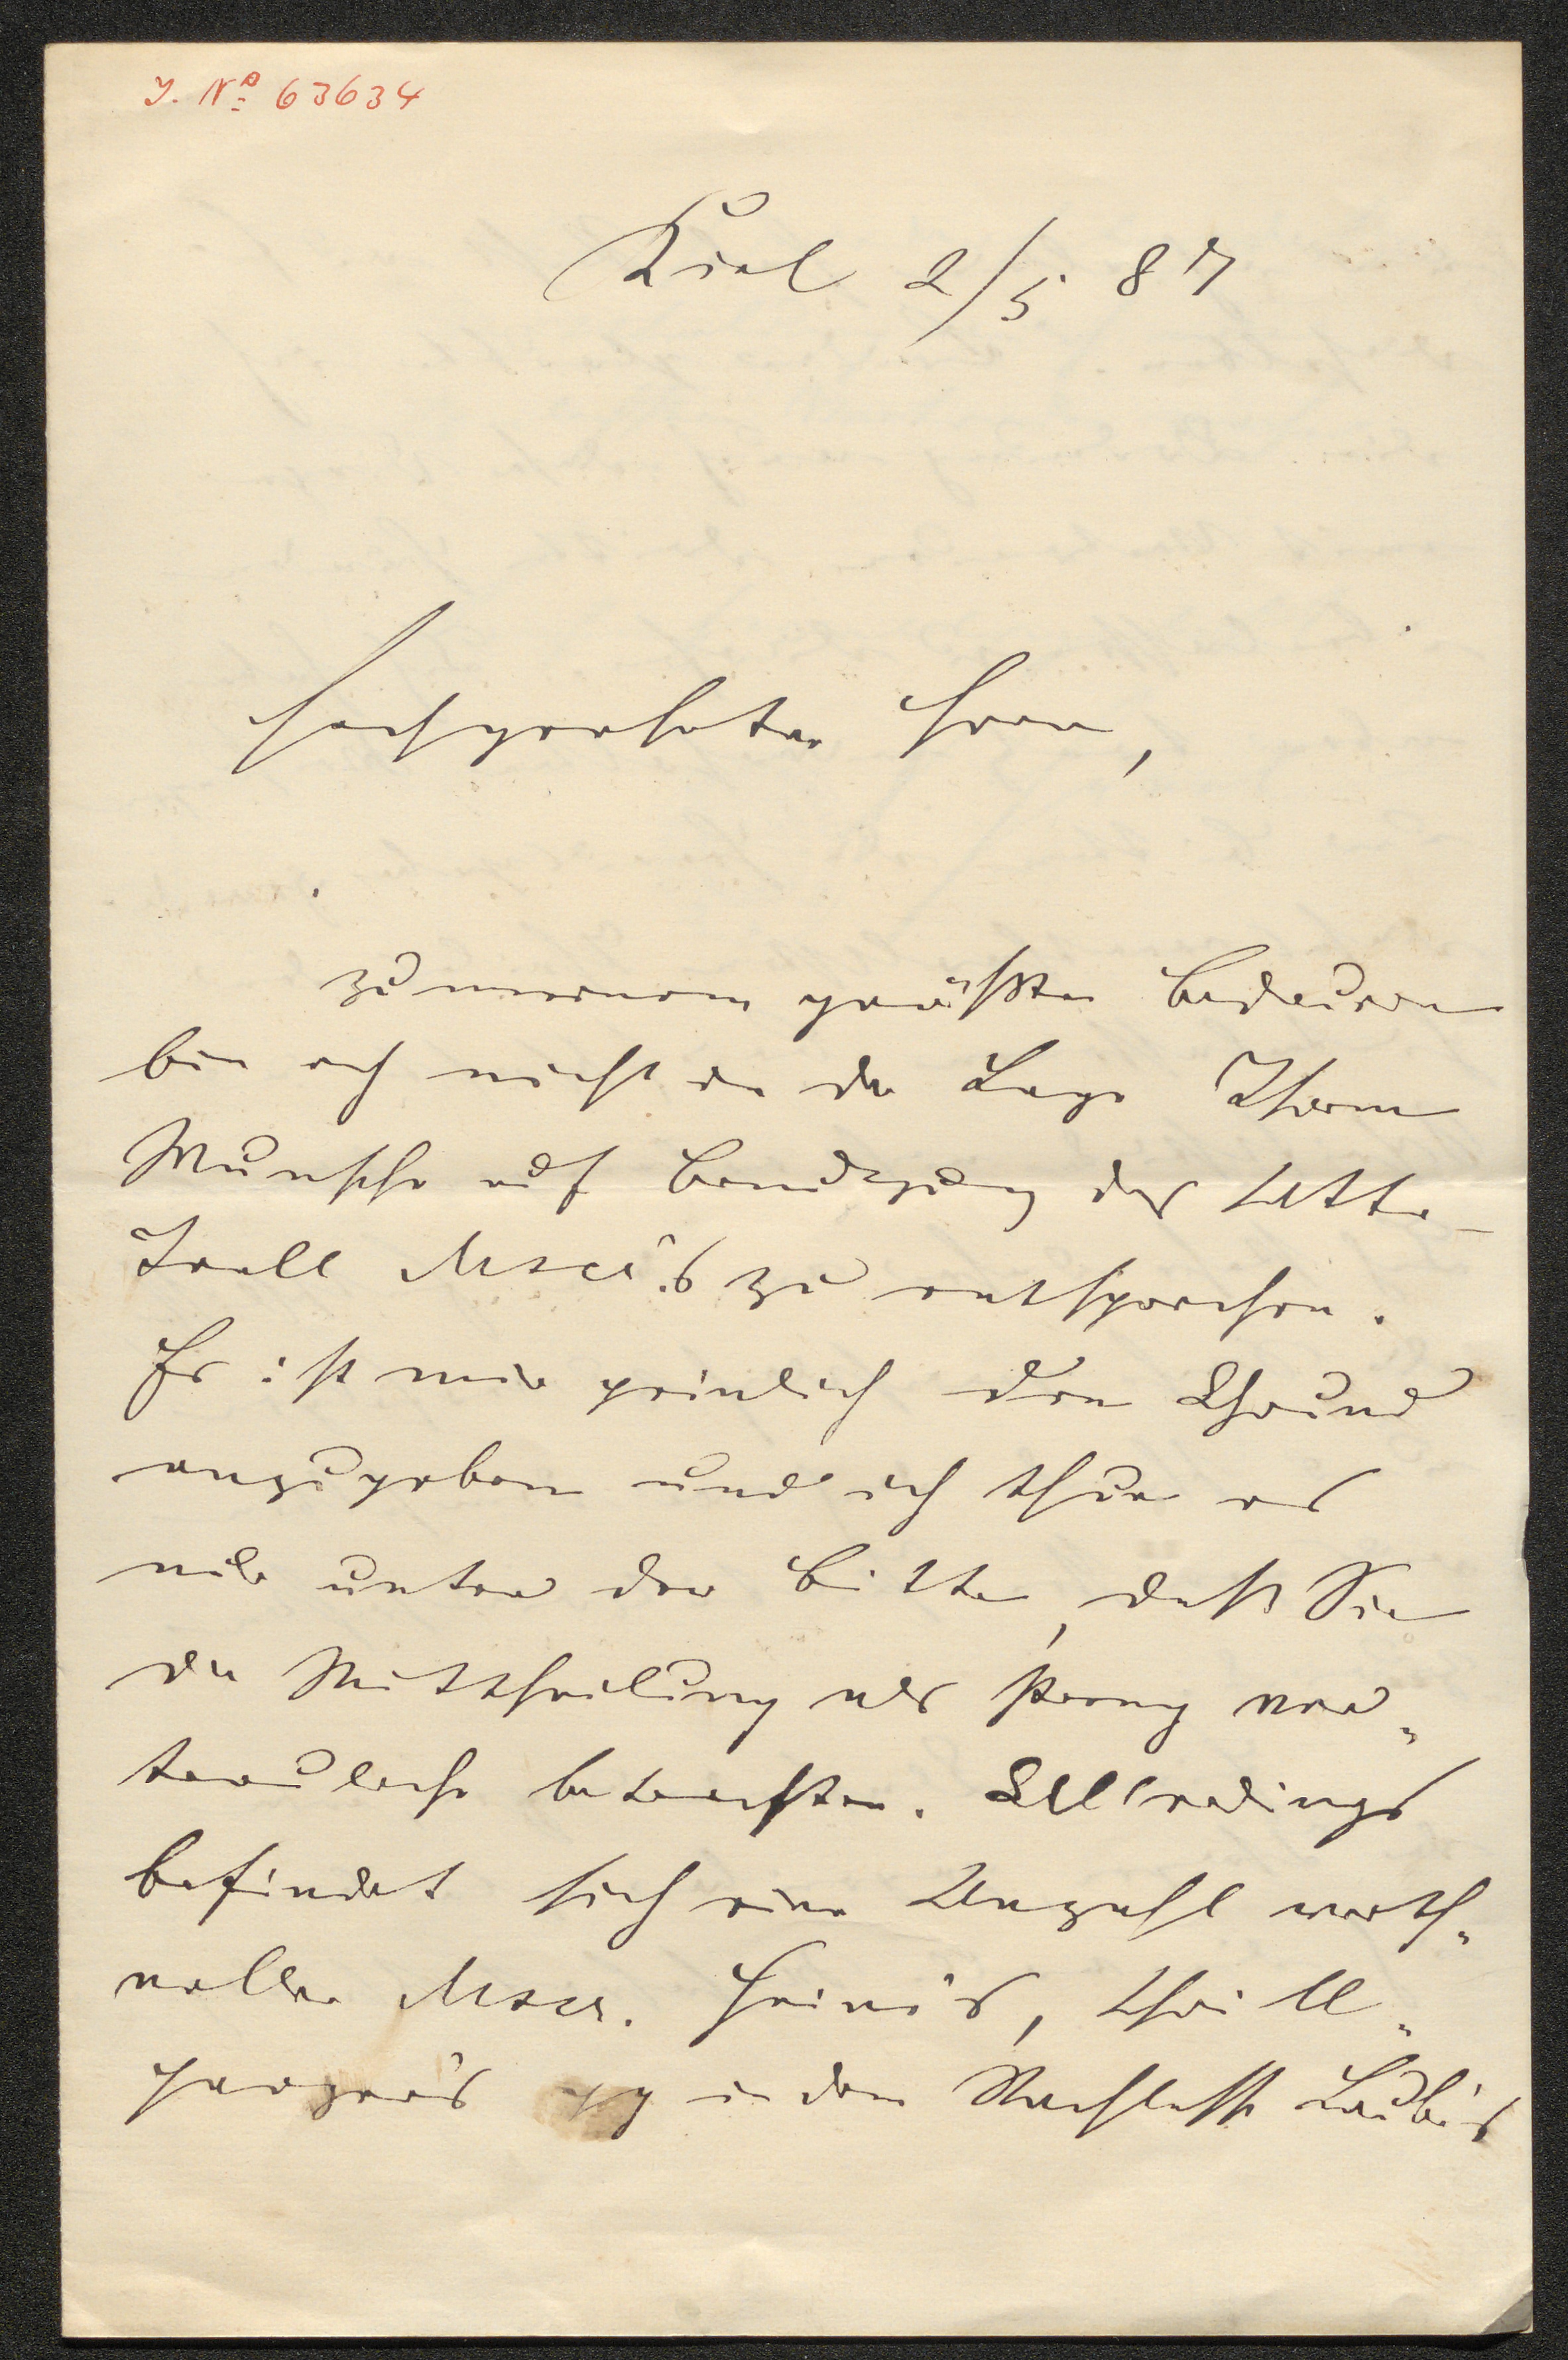 J. No 63634
Kiel 2/5 87
Hochgeehrter Herr,
zu meinem größten Bedauern
bin ich nicht in der Lage Ihrem
Wunsche auf Benutzung des
Mscr's zu entsprechen.
Es ist mir peinlich den Grund
anzugeben und ich thue es
nur unter der Bitte, daß Sie
die Mittheilung als streng ver„
trauliche betrachten. Allerdings
befindet sich eine Anzahl werth„
voller Mscr. Heine's, Grill„
parzer's pp in dem Nachlasse Laube's